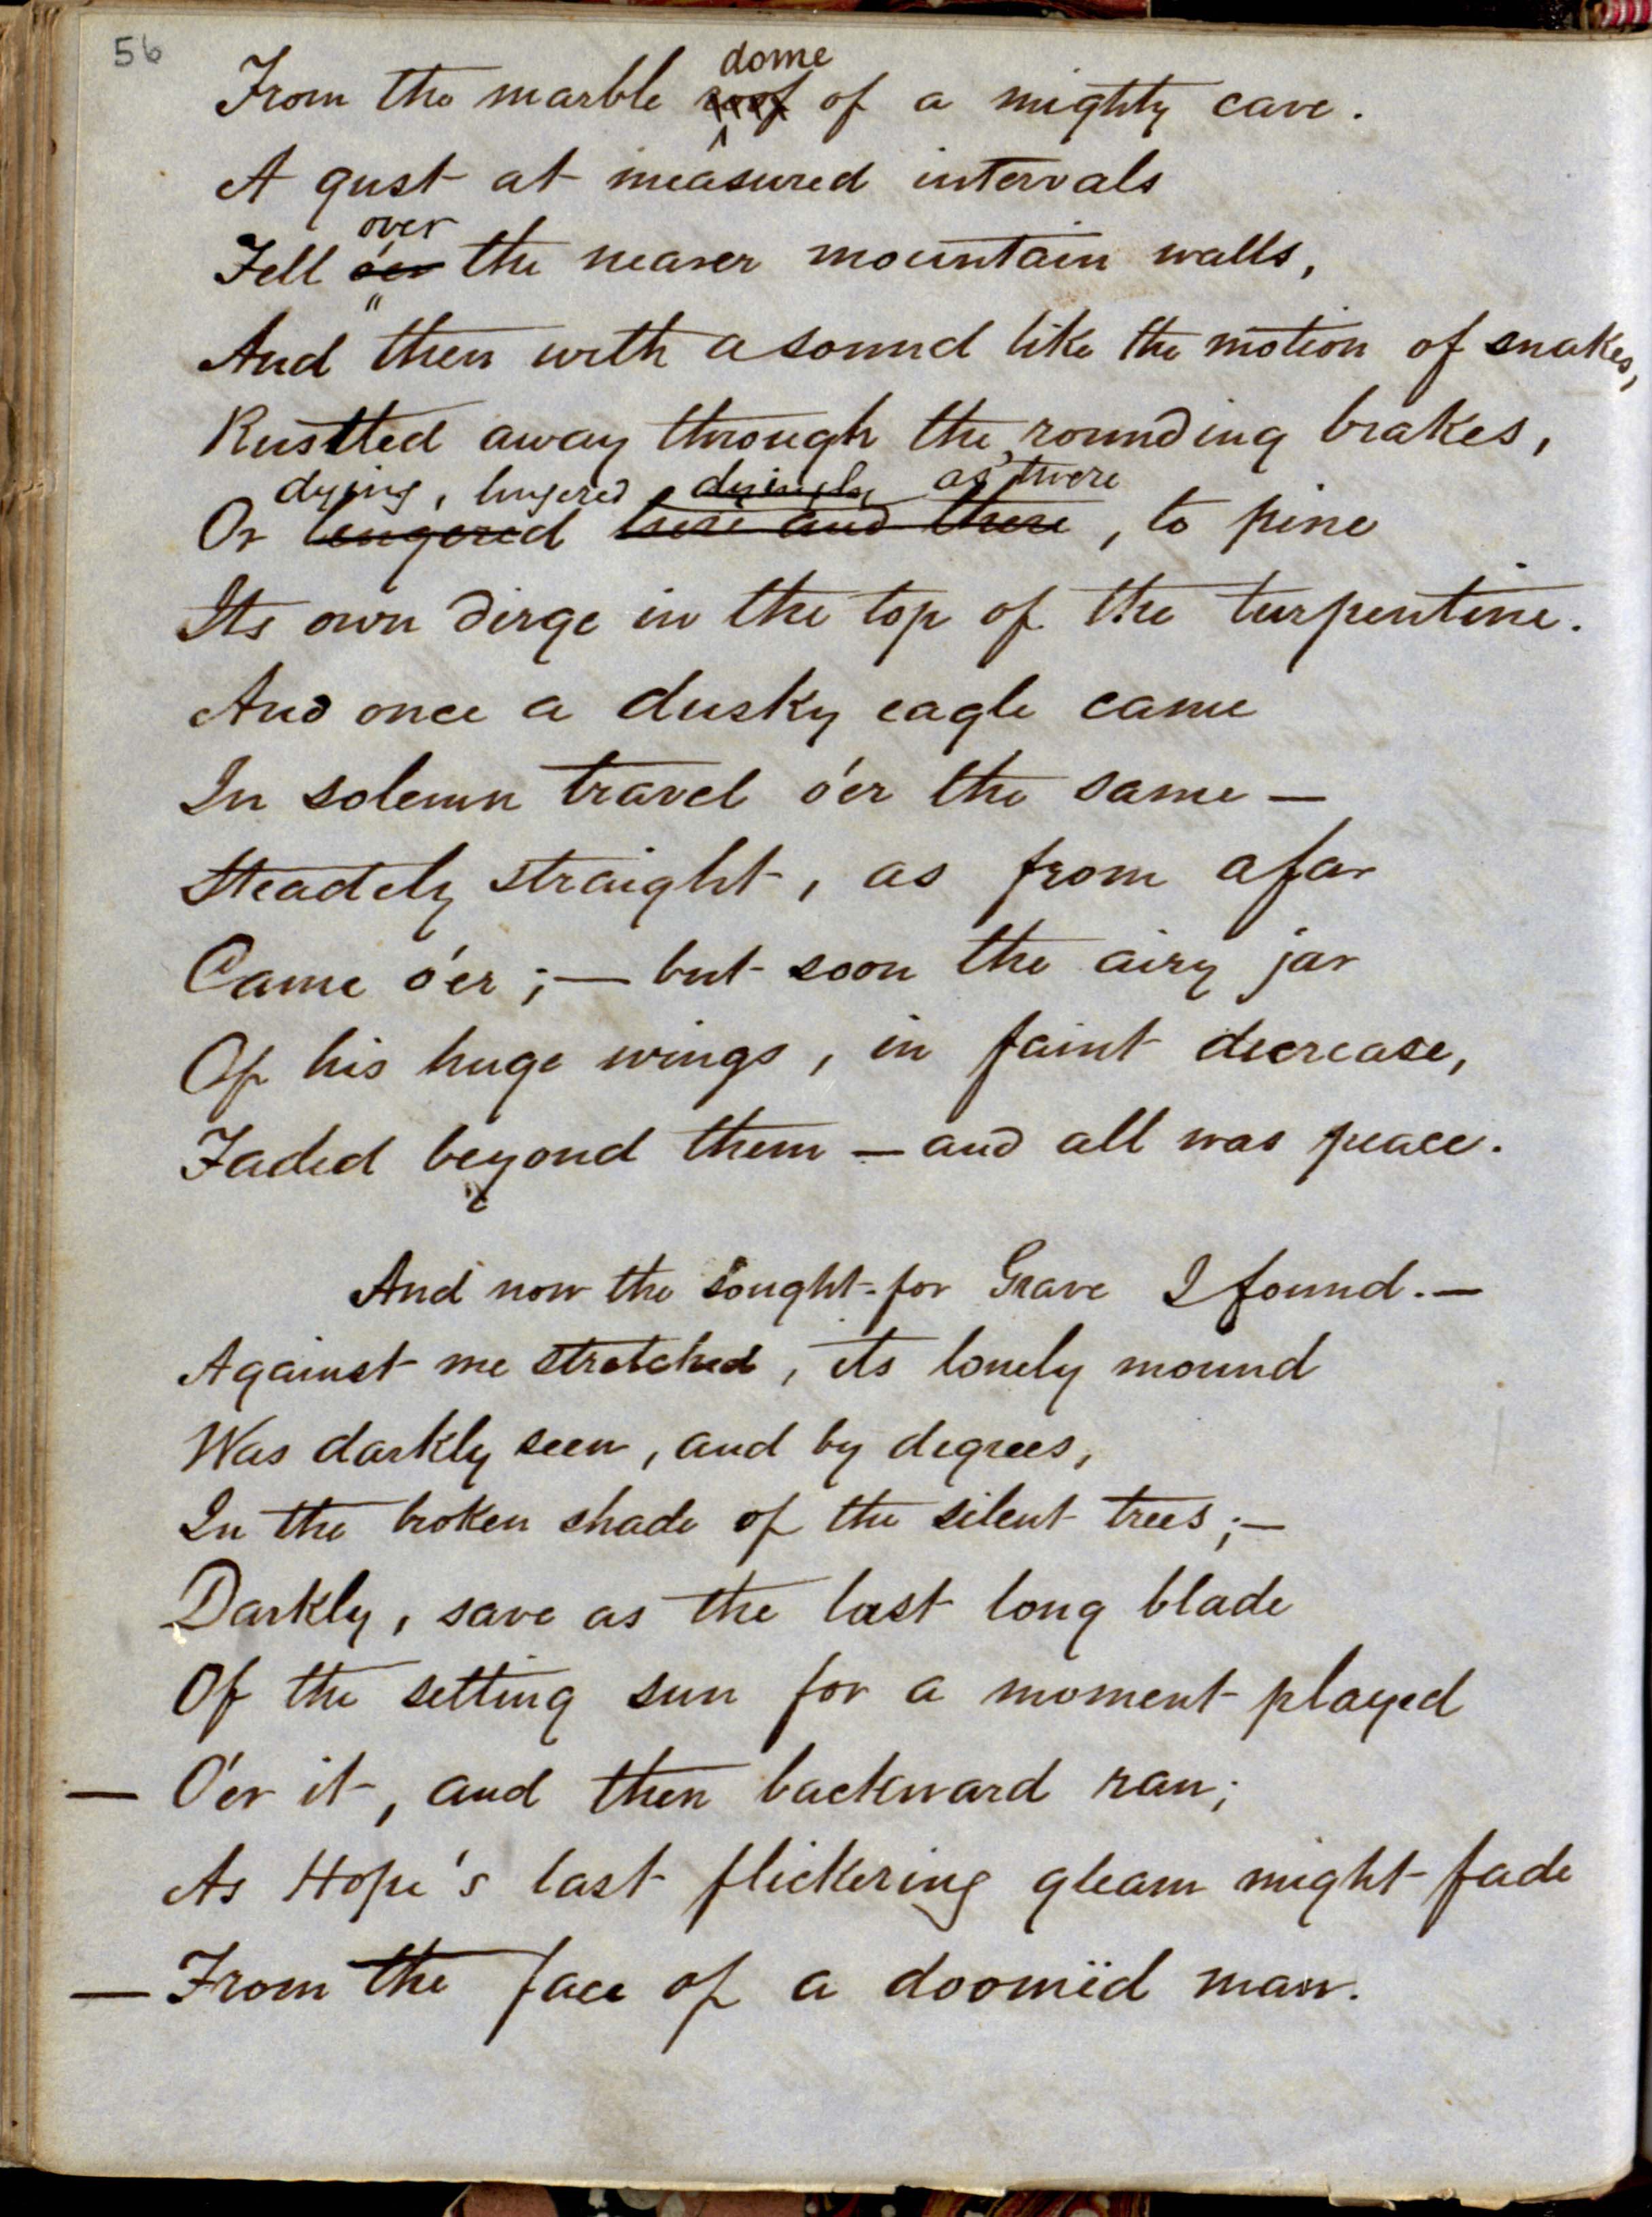 56
dome
From the marble roof of a mighty cave.
A gust at measured intervals
over
Fell o'er the nearer mountain walls,
And then with a sound like the motion of snakes,
Rustled away through the rounding brakes,
dying, lingered dyingly as 'twere
Or lingered here and there, to pine
Its own dirge in the top of the turpentine.
And once a dusky eagle came
In solemn travel o'er the same —
Steadily straight, as from afar
Came o'er; — but soon the airy jar
Of his huge wings, in faint decrease,
Faded beyond them — and all was peace.
And now the sought-for Grave I found. —
Against me stretched, its lonely mound
Was darkly seen, and by degrees,
In the broken shade of the silent trees; —
Darkly, save as the last long blade
Of the setting sun for a moment played
— O'er it, and then backward ran;
As Hope's last flickering gleam might fade
— From the face of a doomëd man.